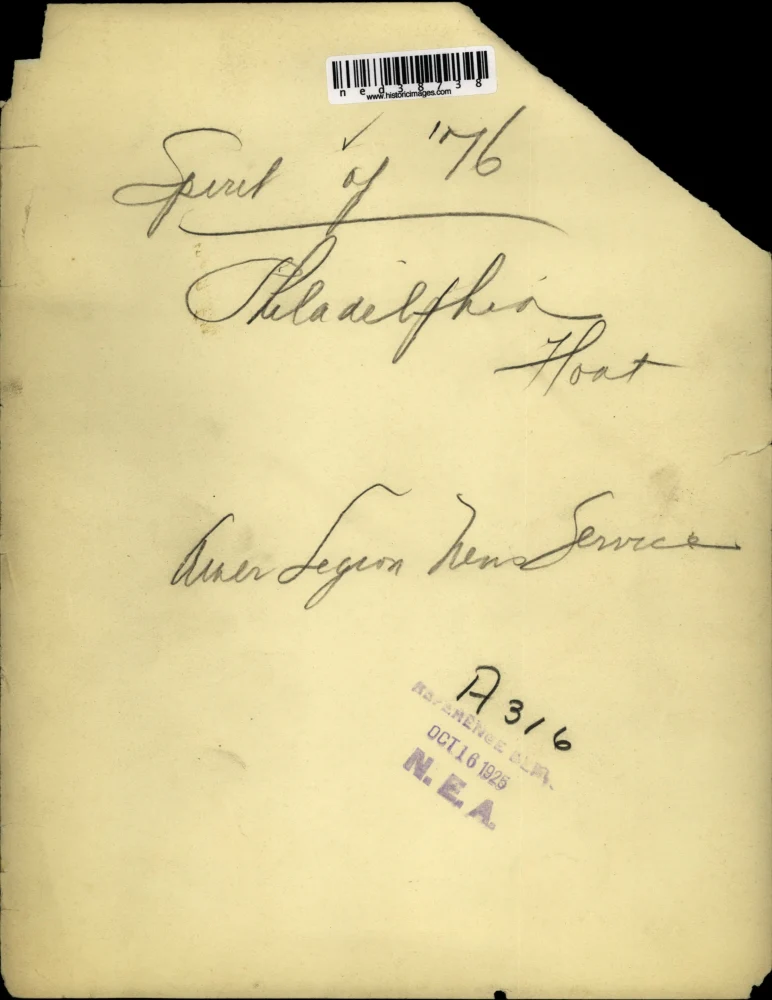 ned38738
www.historicimages.com
Spirit of '76
Philadelphia
Float
Amer Legion News Service
A 316
REFERENCE
OCT 16 1925
N.E.A.